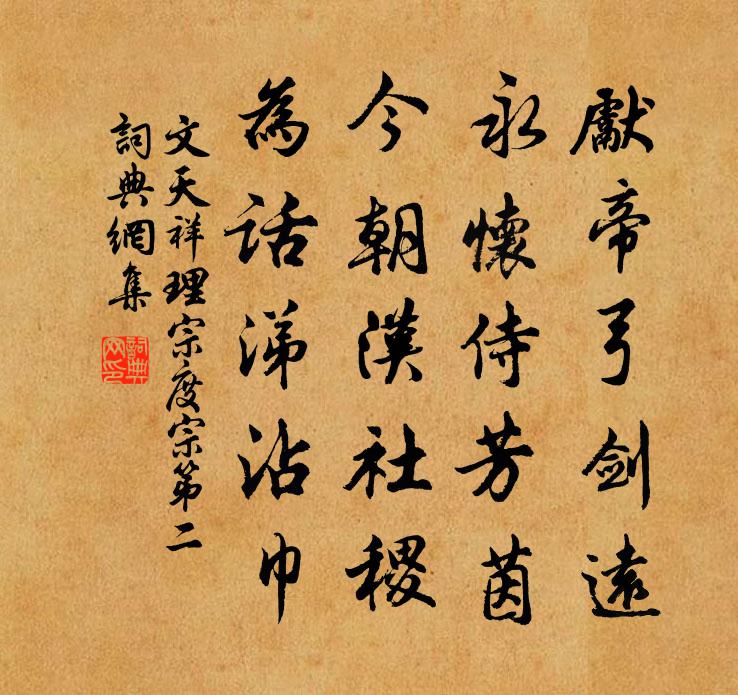 獻帝弓劍遠
永懷侍芳茵
今朝漢社稷
為話涕沾巾
文天祥理宗度宗第二
詞典網集
詞典网印